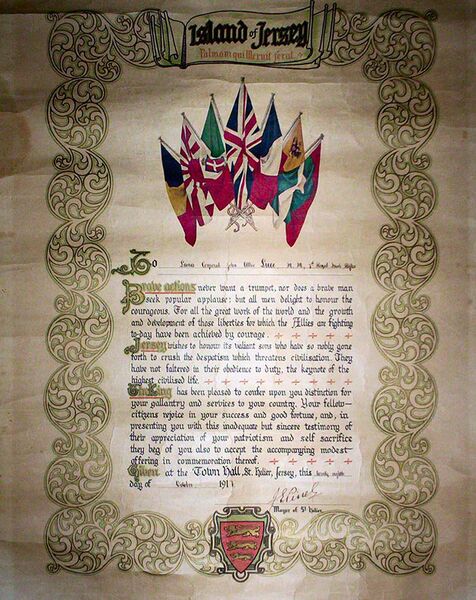 Island of Jersey
Palmam qui Meruit ferat.
To Lance Corporal John Luce M.M., Royal Irish Rifles
Brave actions never want a trumpet, nor does a brave man
seek popular applause: but all men delight to honour the
courageous. For all the great work of the world and the growth
and development of those liberties for which the Allies are fighting
to-day have been achieved by courage.
Jersey wishes to honour its valiant sons who have so nobly gone
forth to crush the despotism which threatens civilisation. They
have not faltered in their obedience to duty, the keynote of the
highest civilised life.
The King has been pleased to confer upon you distinction for
your gallantry and services to your country. Your fellow-
citizens rejoice in your success and good fortune, and, in
presenting you with this inadequate but sincere testimony of
their appreciation of your patriotism and self sacrifice
they beg of you also to accept the accompanying modest
offering in commemoration thereof.
Given at the Town Hall, St. Helier, Jersey, this
day of October 191
Mayor of St Helier